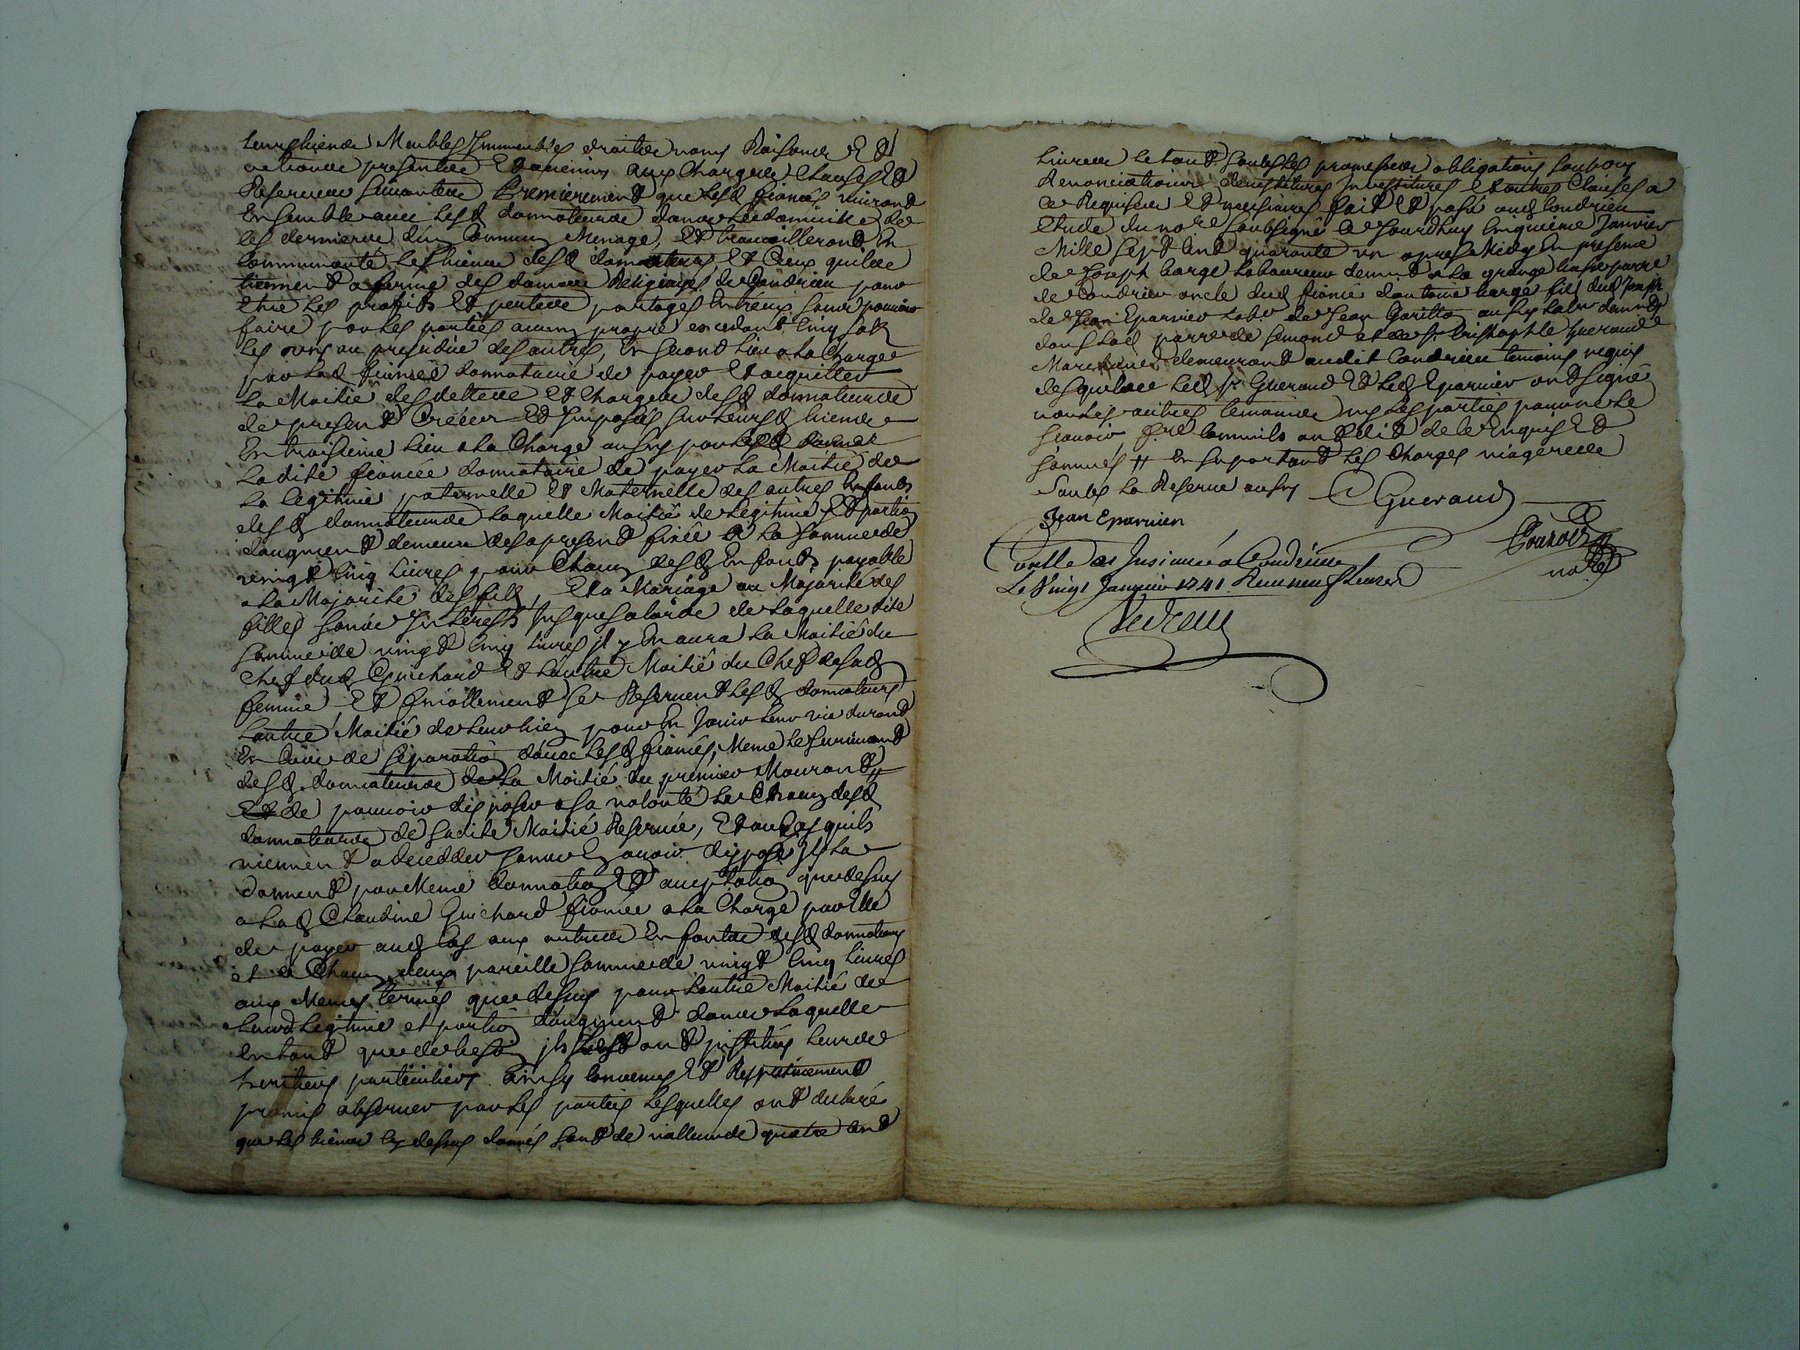 leurs biens Meubles Immeubles droits noms Raisons Et
actions presents Et avenirs aux Charges Clauses Et
Reserves suivantes Premierement que lesd fiancés vivront
Ensemble avec lesd donnateurs dans le domicile de
ces derniers d'un Commun Menage, Et travailleront En
Communauté les biens desd donnateurs Et Ceux quils
tiennent a ferme des dames Religieuses de Condrieu pour
Etre les profits Et pertes partagés Entreux sans pouvoir
faire par les parties aucun propre excedant Cinq sols
les uns au prejudice des autres, En second Lieu a la Charge
par lad fiancée donnataire de payer Et acquitter
la Moitié des dettes Et Charges desd donnateurs
de present Créées Et Imposés sur leursd biens
En troisieme Lieu a la Charge aussy par
Ladite fiancée donnataire de payer la Moitié de
la legitime paternelle Et Maternelle des autres Enfants
desd donnateurs laquelle Moitié de legitime Et portion
d'augment demeure des apresent fixée a la somme de
vingt Cinq Livres pour Chacun desd Enfants payable
a la Majorité des fils, Et a Mariage ou Majorité des
filles sans Interests jusques alors de laquelle dite
somme de vingt Cinq Livres il y En aura la Moitié du
chef dud Guichard Et lautre Moitié du Chef de sad
femme Et finallement se Reservent lesd donnateurs
Lautre Moitié de leur bien pour En Jouir leur vie durant
En Cas de séparation davec lesd fiancés, Meme le survivant
desd donnateurs de la Moitié du premier Mourant //
Et de pouvoir disposer a sa volonté Chacun desd
donnateurs de sadite Moitié Reservée, Et au Cas quils
viennent a deceder sans En avoir disposé ils la
donnent par Meme donnation Et acceptation que dessus
a lad Claudine Guichard fiancée a la Charge par Elle
de payer aud Cas aux autres Enfants desd donnateurs
et a Chacun deux pareille somme de vingt Cinq Livres
aux Memes termes que dessus pour Lautre Moitié de
leurd legitime et portion d'augment dans laquelle
En tant que de besoin ils ont institués leurs
heritiers particuliers. Ainsy Convenu Et Respectivement
promis observer par les parties lesquelles ont declaré
que les biens cy dessus donnés sont de valleur de quatre cent
Livres le tout sous les promesses obligations
Renonciations devestitures Investitures Et autres Clauses a
ce Requises Et necessaires fait Et passé aud Condrieu
Etude du nore soussigné ce Jourdhuy cinquieme Janvier
Mille sept Cent quarante un apres Midy En presence
de Joseph barge laboureur demt a la grange
de Condrieu oncle dud fiancé dantoine barge fils dud
de Jean Eparvier labr de Jean Garitta aussy labr demts
dans lad parre de Semond et de sr. Cristophle Gueraud
Marchand demeurant audit Condrieu temoins requis
desquels led sr Gueraud Et led Eparvier ont signé
non les autres temoins ny les parties pour ne le
scavoir Et de ce Enquis Et
sommés // En suportant les Charges viageres
sous la Reserve aussy C Gueraud
Jean Eparvier
Conllé et Insinué a Condrieu
Le Vingt Janvier 1741